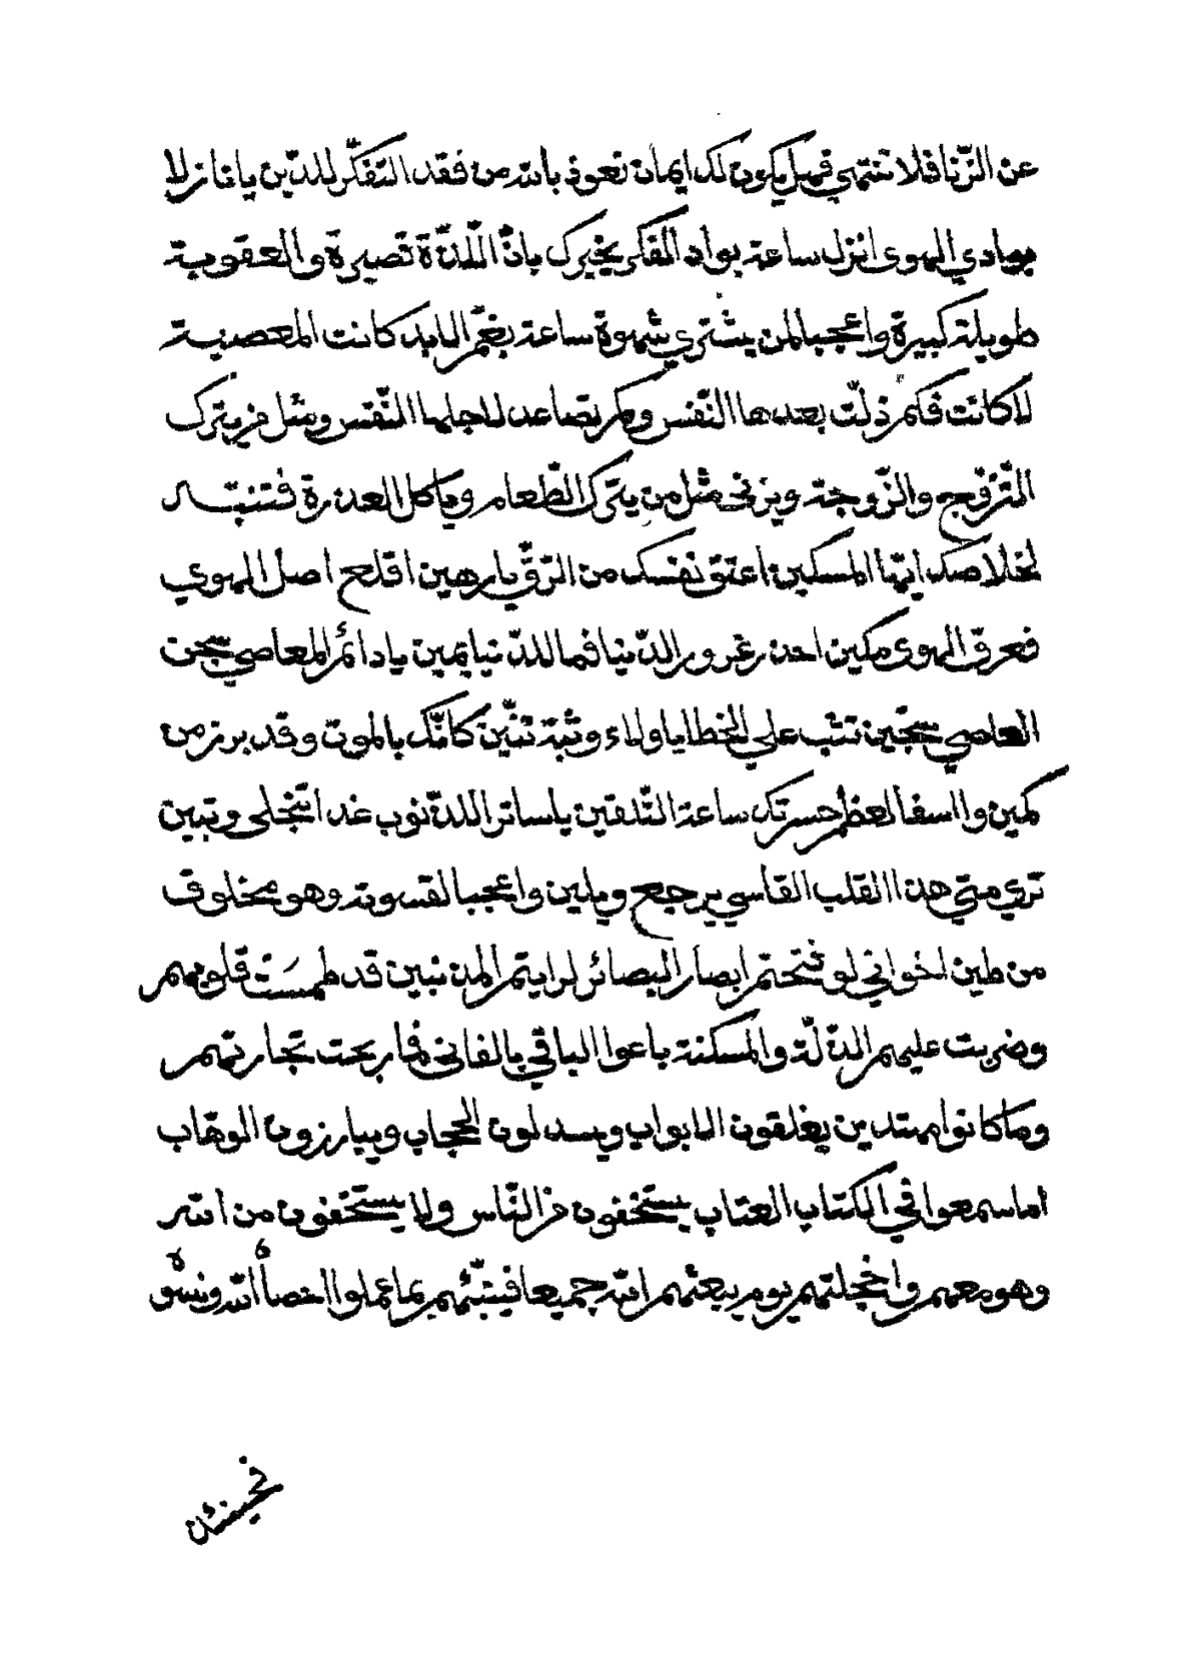 عن الزّنا فلا تنتهي فهل يكون لك ايمان نعوذ بالله من فقد التفكّر للدّين يا نازلا
بوادي الهوى انزل ساعة بواد الفكر يخبرك بانّ اللّذّة قصيرة والعقوبة
طويلة كبيرة واعجبا لمن يشتري شهوة ساعة بغمّ الابد كانت المعصية
لا كانت فكم ذلّت بعدها النّفس وكم تصاعد لاجلها النّفس ومثل من يترك
التّزوّج والزّوجة ويزني مثل من يترك الطّعام وياكل العذرة فتنبّه
لخلاصك ايّها المسكين اعتق نفسك من الرّقّ يا رهين اقلع اصل الهوي
فعرق الهوى مكين احذر غرور الدّنيا فما للدّنيا يمين يا دائم المعاصي سجن
العاصي سجّين تثب علي الخطايا ولاء وثبة تنّين كانّك بالموت وقد برز من
كمين وااسفا لعظم حسرتك ساعة التّلقين يا ساتر الذّنوب غدا تتجلى وتبين
تري متي هذا القلب القاسي يرجع ويلين واعجبا لقسوته وهو مخلوق
من طين اخواني لو فتحتم ابصار البصائر لرايتم المذنبين قد طمست قلوبهم
وضربت عليهم الذّلّة والمسكنة باعوا الباقي بالفاني فما ربحت تجارتهم
وما كانوا مهتدين يغلقون الابواب ويسدلون الحجاب ويبارزون الوهّاب
اما سمعوا في الكتاب العتاب يستخفون من النّاس ولا يستخفون من الله
وهو معهم واخجلتهم يوم يبعثهم الله جميعا فينبّئهم بما عملوا احصاه الله ونسوه